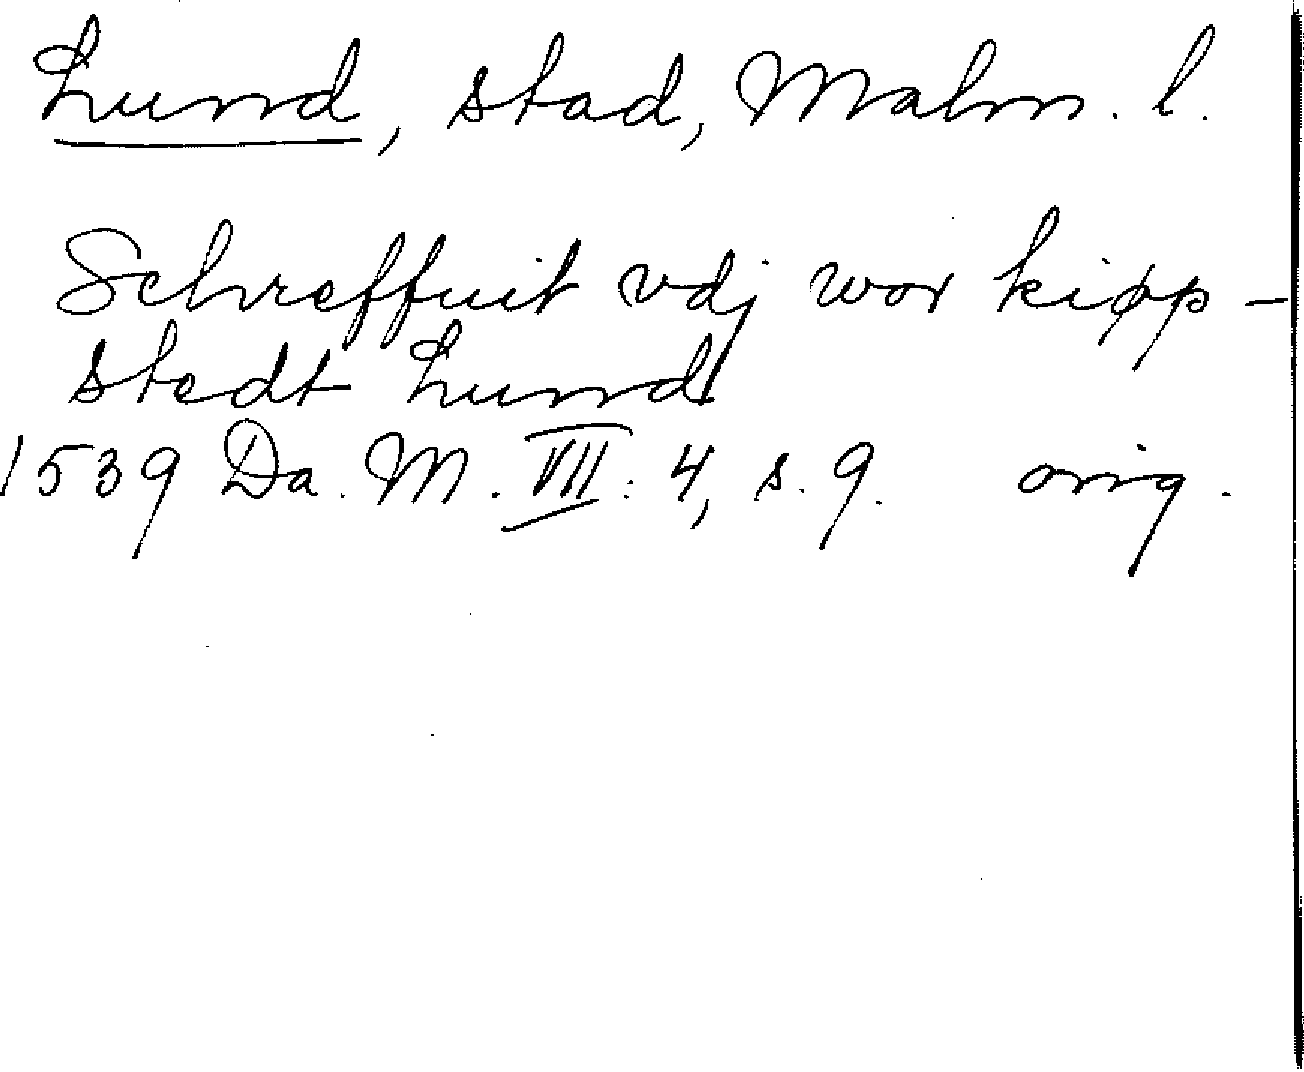 Lund, stad, Malm. l.
Schreffuit vdj wor kiøp-
stedt Lund
1539 Da. M. VII: 4, s. 9. orig.